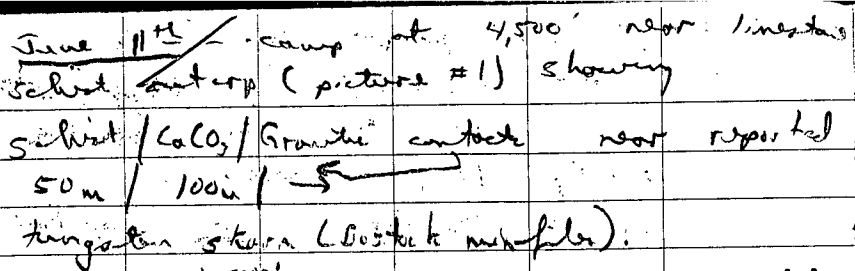 June 11th - camp at 4,500' near limestone
schist outcrp (picture #1) showing
schist / CaCO3 / Granitic contact near reported
50m / 100m / →
tungsten skarn (Bostock min-files).